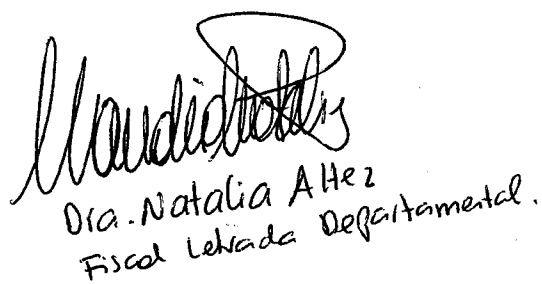 Dra. Natalia Altez
Fiscal Letrada Departamental.